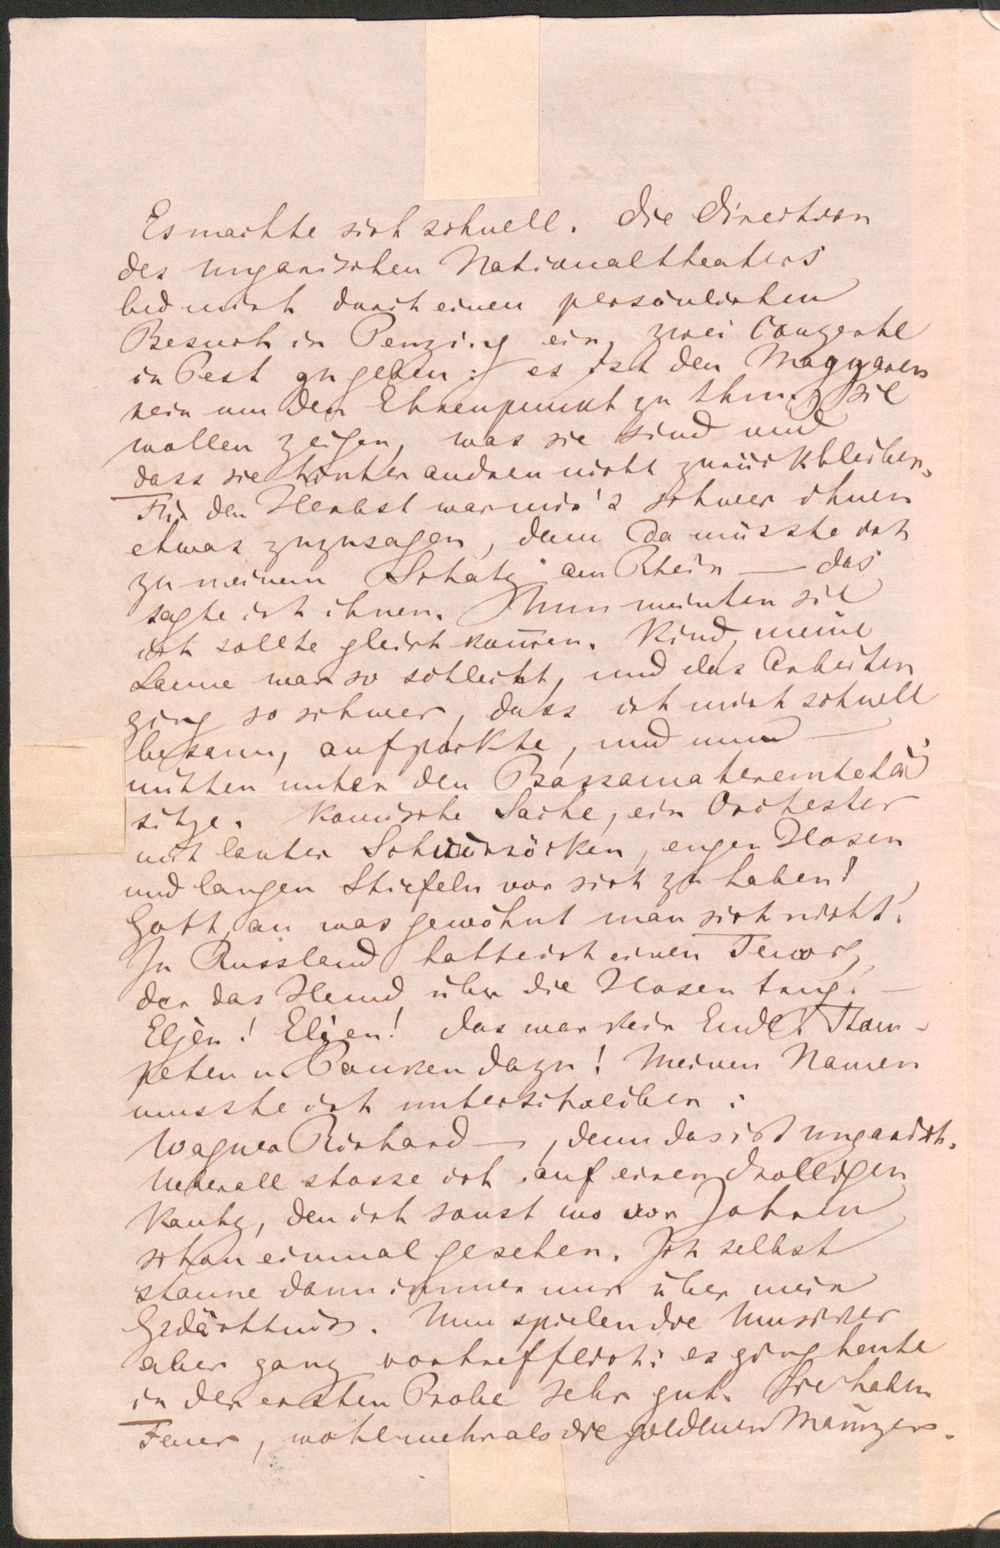 Es machte sich schnell. Die Direction
des ungarischen Nationaltheaters
lud mich durch einen persönlichen
Besuch in Penzing ein, zwei Conzerte
in Pest zu geben: es ist den Magyaren
rein um den Ehrenpunkt zu thun, sie
wollen zeigen, was sie sind und
dass sie hinter andren nicht zurückbleiben.
Für den Herbst war mir's schwer ihnen
etwas zuzusagen, denn da müsste ich
zu meinem Schatz am Rhein — das
sagte ich ihnen. Nun meinten sie
ich sollte gleich kom̄en. Kind, meine
Laune war so schlecht, und das Arbeiten
ging so schwer, dass ich mich schnell
besann, aufpackte, und nun —
mitten unter den
sitze. Komische Sache, ein Orchester
mit lauter Schnürröcken, engen Hosen
und langen Stiefeln vor sich zu haben!
Gott, an was gewöhnt man sich nicht!
In Russland hatte ich einen Tenor,
der das Hemd über die Hosen trug. —
Eljen! Eljen! das war kein Ende! Trom-
peten u. Pauken dazu! Meinen Namen
musste ich unterschreiben:
Wagner Richard —, denn das ist ungarisch.
Ueberall stosse ich auf einen drolligen
Kautz, den ich sonst wo vor Jahren
schon einmal gesehen. Ich selbst
staune dann immer nur über mein
Gedächtniss. Nun spielen die Musiker
aber ganz vortrefflich: es ging heute
in der ersten Probe sehr gut. Sie haben
Feuer, wohl mehr als die goldenen Mainzer.